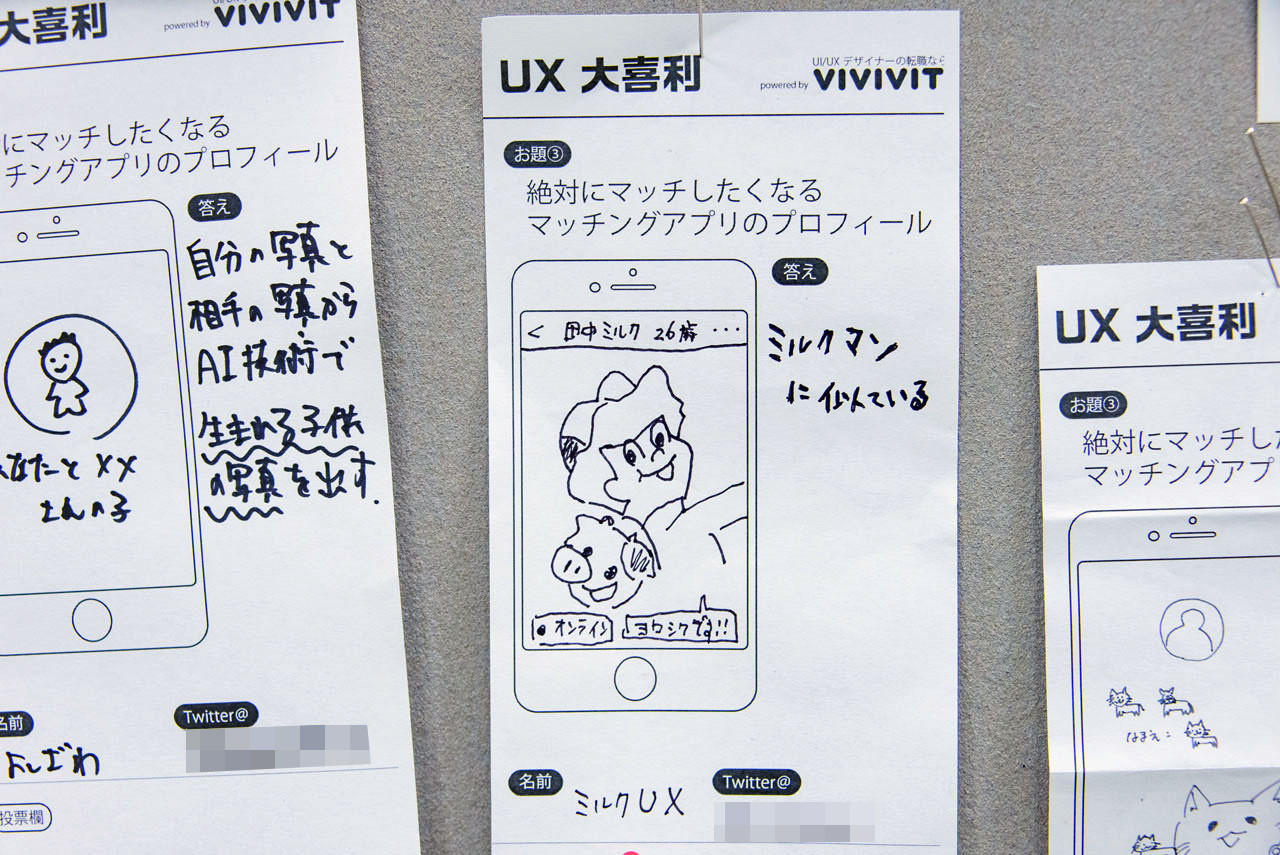 大喜利
powered by
VIVIVIT
にマッチしたくなる
チングアプリのプロフィール
答え
自分の写真と
相手の写真から
AI技術で
生まれる子供
の写真を出す.
なたと××
さんの子
名前
よしざわ
Twitter@
投票欄
UX 大喜利
UI/UX デザイナーの転職なら
powered by VIVIVIT
お題③
絶対にマッチしたくなる
マッチングアプリのプロフィール
答え
ミルクマン
に似ている
< 田中ミルク 26歳 ...
オンライン
ヨロシクです!!
名前
ミルクUX
Twitter@
UX 大喜利
お題③
絶対にマッチした
マッチングアプリ
なまえ: